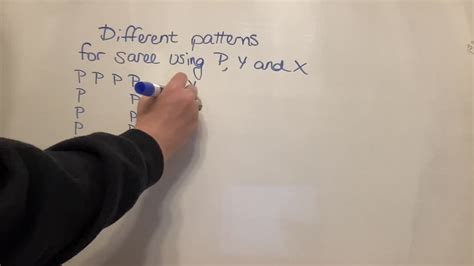 Different patterns
for saree using P, Y and X
P P P P Y
P P
P P
P P